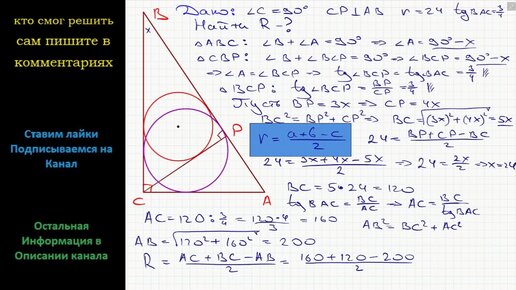 кто смог решить
сам пишите в
комментариях
Ставим лайки
Подписываемся на
Канал
Остальная
Информация в
Описании канала
B
x
P
C
A
Дано: ∠C = 90° CP⊥AB r = 24 tg BAC = 3/4
Найти R - ?
△ABC: ∠B + ∠A = 90° ⇒ ∠A = 90° - x
△CBP: ∠B + ∠BCP = 90° ⇒ ∠BCP = 90° - x
⇒ ∠A = ∠BCP ⇒ tg∠BCP = tg BAC = 3/4
△BCP: tg∠BCP = BP/CP = 3/4
Пусть BP = 3x ⇒ CP = 4x
BC² = BP² + CP² ⇒ BC = √(3x)² + (4x)² = 5x
r = a+b-c/2 24 = BP+CP-BC/2
24 = 3x+4x-5x/2 ⇒ 24 = 2x/2 ⇒ x = 24
BC = 5·24 = 120
tg BAC = BC/AC ⇒ AC = BC/tg BAC
AC = 120 : 3/4 = 120·4/3 = 160
AB² = BC² + AC²
AB = √120² + 160² = 200
R = AC + BC - AB/2 = 160 + 120 - 200/2